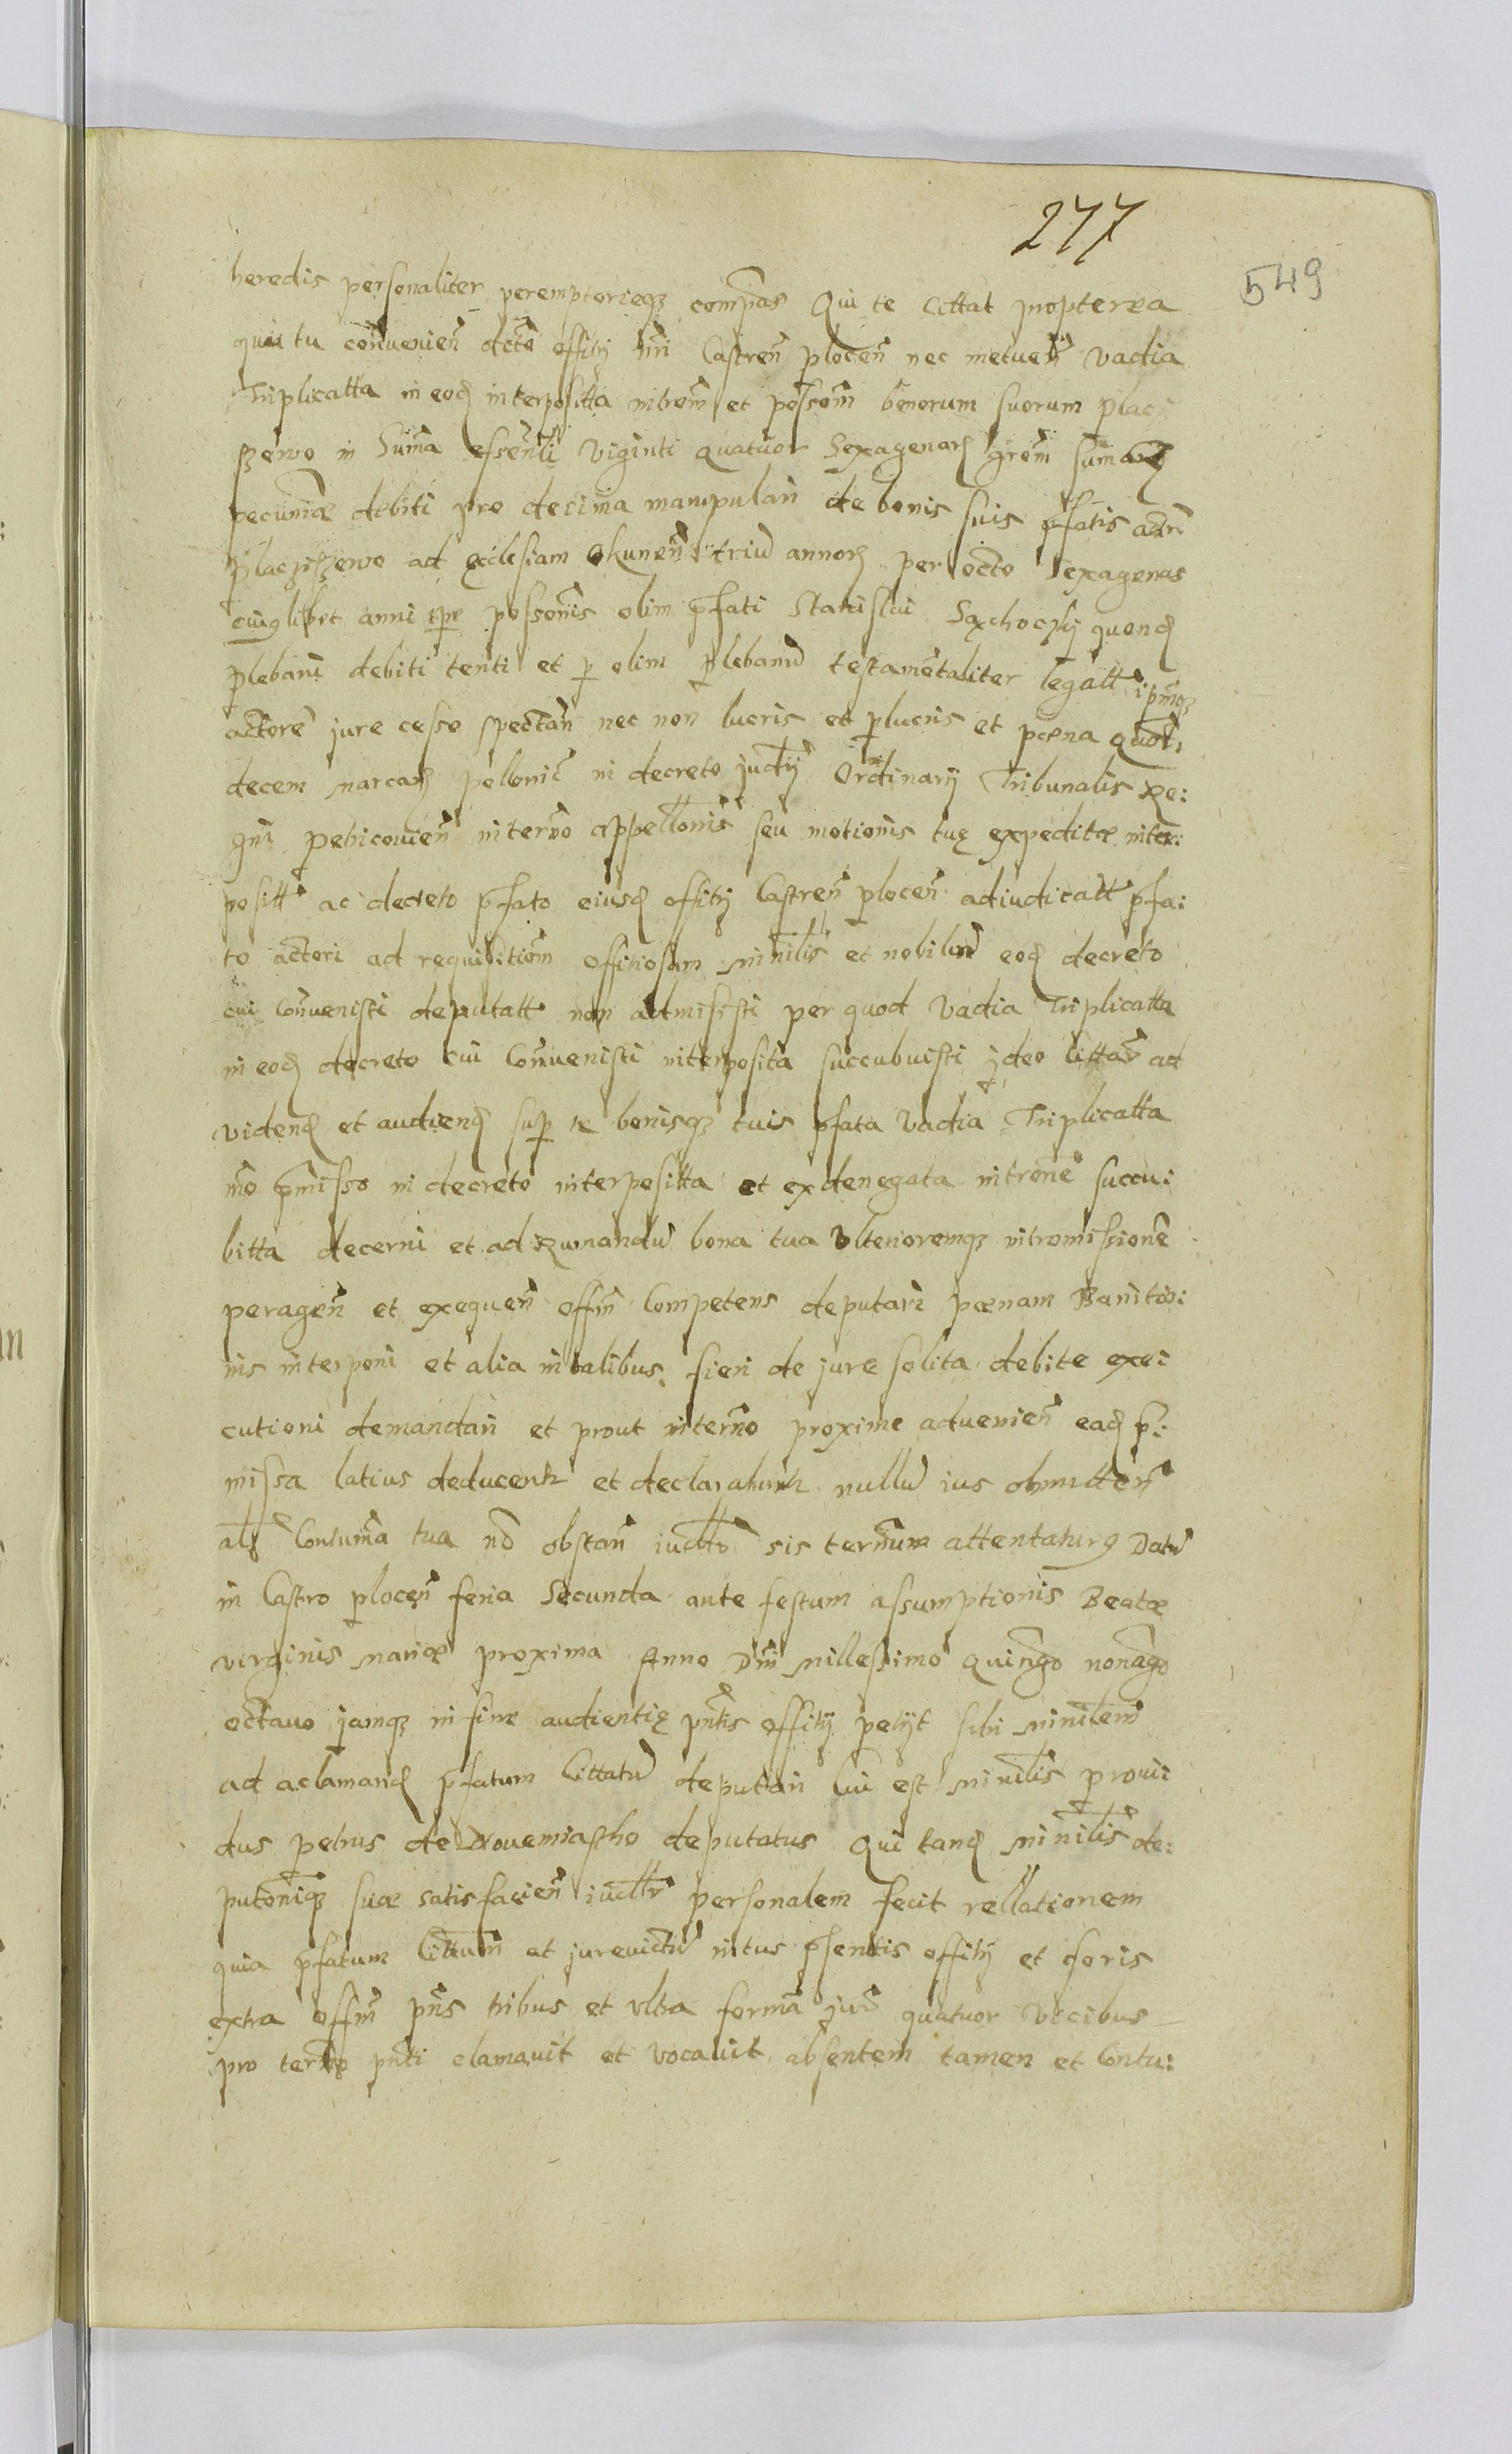 277
549
heredis personaliter peremptorieqz compas Qui te Cittat propterea
quia tu conuenien dcto offitij nri Castren plocen nec metuen vadia
Triplicatta in eod interpositta introm et possom bonorum suorum placi
szewo in Suma essentli viginti quatuor Sexagenar grem sumar
pecuniæ debiti pro decima manipulari de bonis suis pfatis
placziszewo ad ecclesiam Okunen triu annor per octo Sexagenas
cuiuslibet anni tpre possonis olim pfati Stanislai Sxchoczky quond
plebani debiti tenti et p olim plebanu testamentaliter legatt ipmqz
actore jure cesso spectan nec non lucris et plucris et pæna quatuor
decem marcar pellonic in decreto judtij Ordinarij Tribunalis Re:
gni petricouien in termo appellonis seu motionis tuę expeditæ inter:
positt ac decreto pfato eiusd offitij Castren plocen adiudicatt pfa:
to actori ad requisitiom offitiosam minilis et nobiliu eod decreto
cui Conuenisti deputatt non admisisti per quod vadia Triplicatta
in eod decreto cui Conuenisti interposita succubuisti jdeo cittar ad
vidend et audiend sup te bonisqz tuis pfata vadia Triplicatta
mo pmisso in decreto interpositta et ex denegata introne succu:
bitta decerni et ad Rumandu bona tua vlterioremqz intromissione
peragen et exequen offm Competens deputari pænam Banitio:
nis interponi et alia in talibus fieri de jure solita debite exe:
cutioni demandari et prout in termo proxime aduenien ead p:
missa latius deducentr et declarabuntr nullu ius obmitten
als Contuma tua no obstan iudtr sis termum attentaturq Datu
in Castro plocen feria Secunda ante festum assumptionis Beatæ
virginis mariæ proxima Anno Dni millesimo quingo nonago
octauo jamqz in fine audientię pntis offitij petijt sibi minilem
ad aclamand pfatum Cittatu deputari Cui est minilis proui:
dus petrus de Nouemiastho deputatus Qui tand minilis de:
putoniqz suæ satisfacien iudtr personalem fecit rellationem
quia pfatum Cittum et jurevictu intus psentis offitij et foris
extra offm pns tribus et vltra forma jur quatuor vicibus
pro termo pnti clamauit et vocauit absentem tamen et Contu: